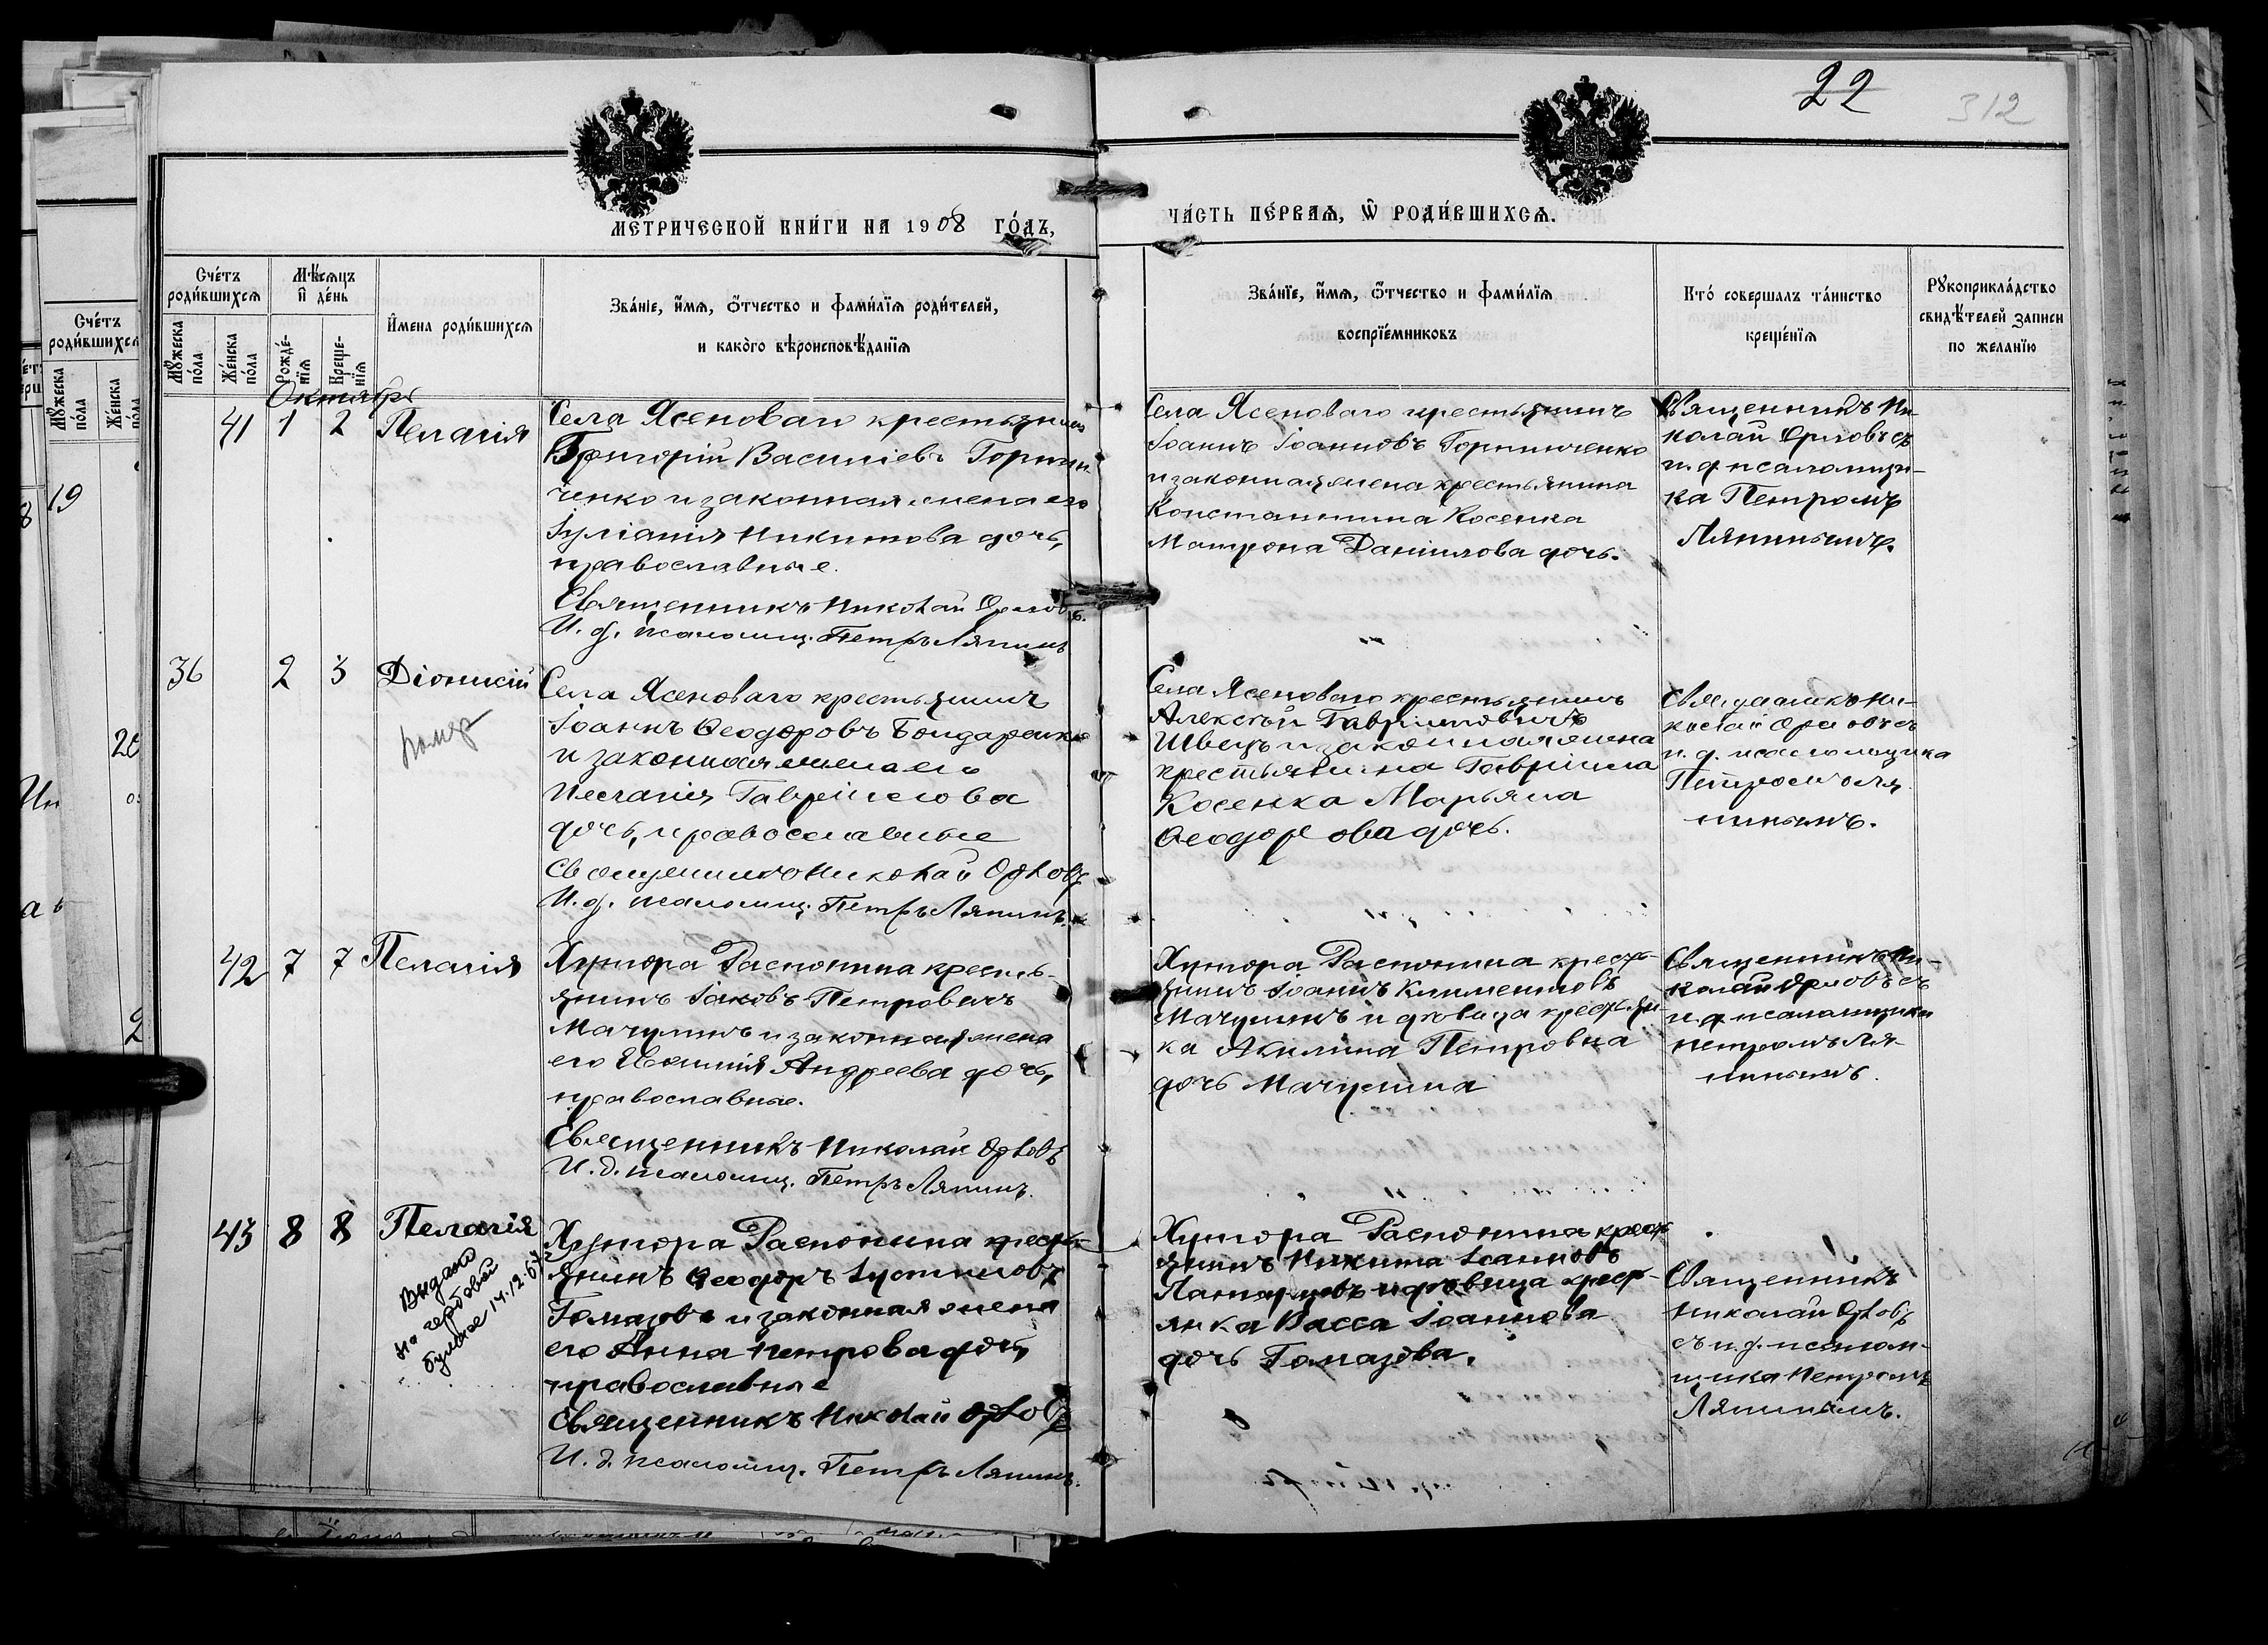 22
312
МЕТРИЧЕСКОЙ КНИ́ГИ НА 1908 ГО́ДЪ,
ЧА́СТЬ ПЕ́РВАѦ, Ѡ҆ РОДИ́ВШИХСѦ.
Сче́тъ родившихсѧ
Мѣ́сѧцъ и҆ де́нь
И҆мена роди́вшихсѧ
Зва́нїе, и҆́мѧ, ѻ҆́тчество и фами́лїѧ роди́телей,
и како́го вѣроисповѣ́данїѧ
Зва́нїе, и҆́мѧ, ѻ҆́тчество и фами́лїѧ
воспрїе́мниковъ
Кто́ соверша́лъ та́инство
креще́нїѧ
Рꙋкоприкла́дство
свидѣ́телей записи
по жела́нїю
Мꙋ́жеска по́ла
Же́нска по́ла
Рожде́нїѧ
Креще́нїѧ
Октябрь
41 1 2 Пелагія
Села Ясеноваго крестьянинъ
Григорій Василіевъ Горнич
ченко и законная жена его
Іуліанія Никитова дочь,
православные.
Священникъ Николай Орловъ.
И. д. псаломщ. Петръ Ляпинъ
Села Ясеноваго крестьянинъ
Іоаннъ Іоанновъ Горниченко
и законная жена крестьянина
Константина Косенка
Матрона Даніилова дочь.
Священникъ Ни-
колай Орловъ съ
и. д. псаломщи-
ка Петромъ
Ляпинымъ.
36 2 3 Діонисій
Села Ясеноваго крестьянинъ
Іоаннъ Ѳеодоровъ Бондаренко
и законная жена его
Пелагія Гавріилова
дочь, православные
Священникъ Николай Орловъ
И. д. псаломщ. Петръ Ляпинъ.
Села Ясеноваго крестьянинъ
Алексѣй Гавріиловичъ
Швецъ и законная жена
крестьянина Гавріила
Косенка Марьяна
Ѳеодорова дочь.
Священникъ Ни-
колай Орловъ съ
и. д. псаломщика
Петромъ Ля
пинымъ.
42 7 7 Пелагія
Хутора Распонина кресть-
янинъ Іаковъ Петровичъ
Мачулинъ и законная жена
его Евѳимія Андреева дочь,
православные.
Священникъ Николай Орловъ
И. д. псаломщ. Петръ Ляпинъ.
Хутора Распонина кресть-
янинъ Іоаннъ Климентовъ
Мачулинъ и вдовица крестьян-
ка Акилина Петровна
дочь Мачулина
Священникъ Ни-
колай Орловъ съ
и. д. псаломщика
Петромъ Ля-
пинымъ.
43 8 8 Пелагія
Выдано
на гербовой
бумаге 14.12.67
Хутора Распонина кресть-
янинъ Ѳеодоръ Іустиновъ
Гомазовъ и законная жена
его Анна Петрова дочь,
православные
Священникъ Николай Орловъ
И. д. псаломщ. Петръ Ляпинъ.
Хутора Распонина крест
янинъ Никита Іоанновъ
и вдовица крест-
янка Васса Іоаннова
дочь Гомазова.
Священникъ
Николай Орловъ
съ и. д. псалом-
щика Петромъ
Ляпинымъ.